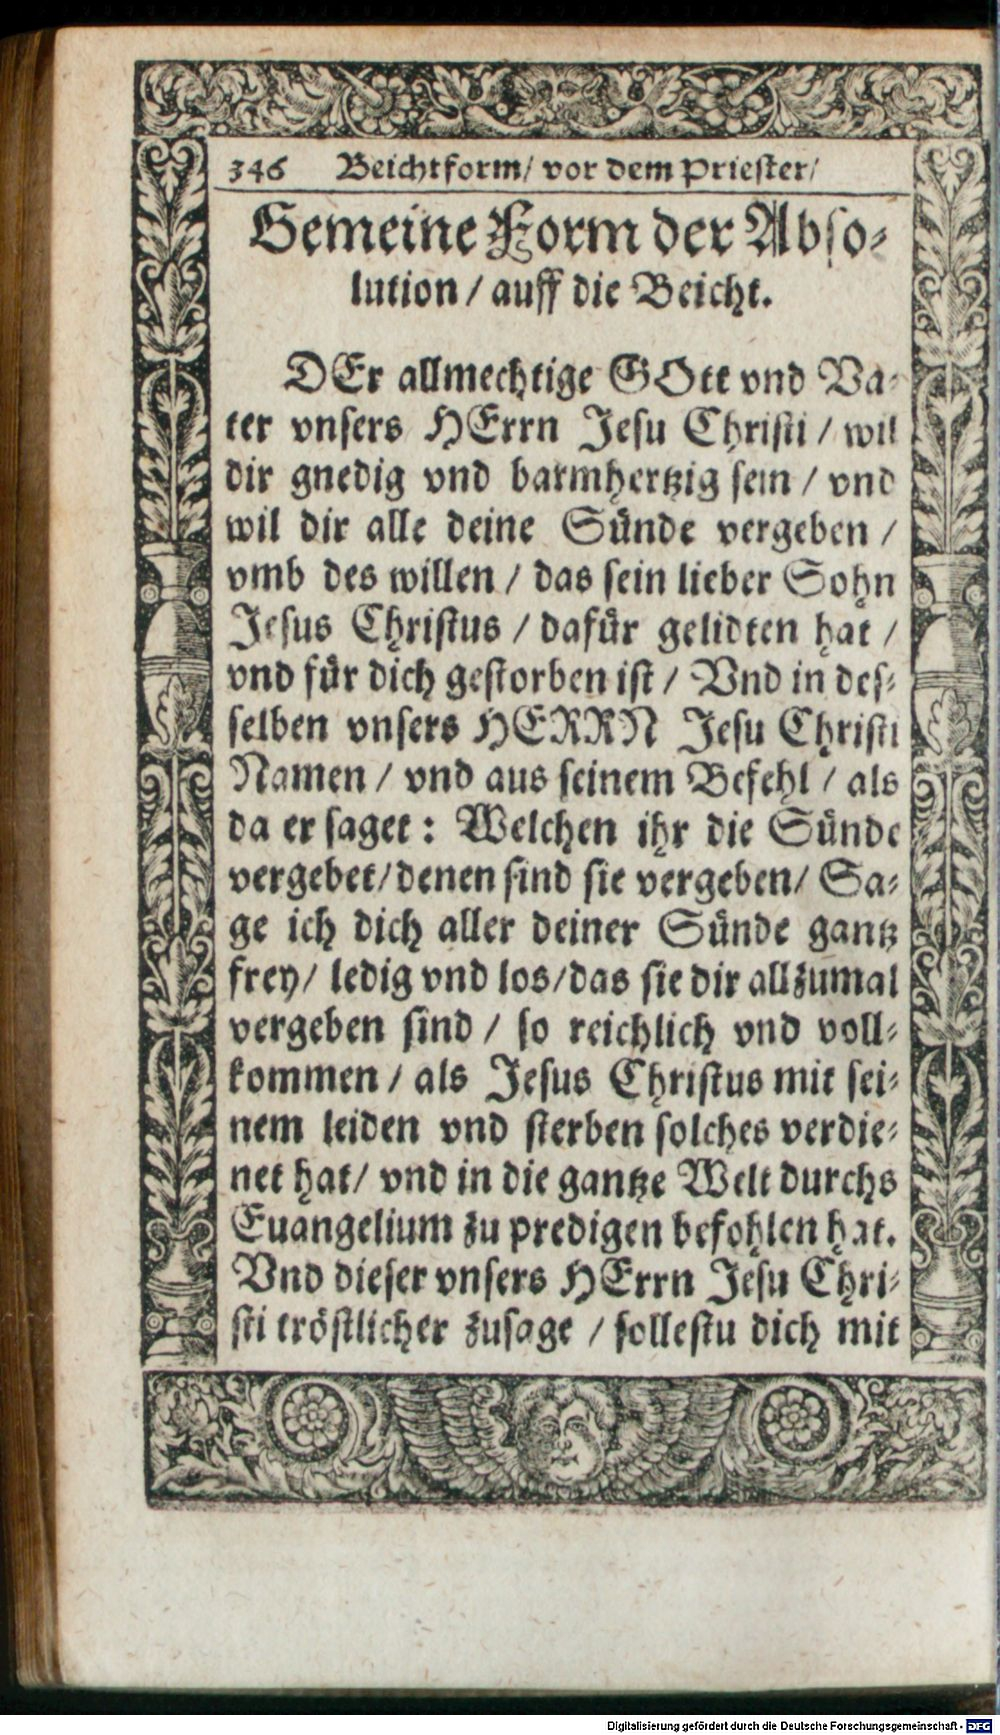 346 Beichtform/ vor dem Priester/
Gemeine Form der Abso-
lution / auff die Beicht.
DEr allmechtige GOtt vnd Va-
ter vnsers HErrn Jesu Christi / wil
dir gnedig vnd barmhertzig sein / vnd
wil dir alle deine Sünde vergeben /
vmb des willen / das sein lieber Sohn
Jesus Christus / dafür gelidten hat /
vnd für dich gestorben ist / Vnd in des-
selben vnsers HERRN Jesu Christi
Namen / vnd aus seinem Befehl / als
da er saget : Welchen ihr die Sünde
vergebet/denen sind sie vergeben/ Sa-
ge ich dich aller deiner Sünde gantz
frey/ ledig vnd los/das sie dir allzumal
vergeben sind / so reichlich vnd voll-
kommen / als Jesus Christus mit sei-
nem leiden vnd sterben solches verdie-
net hat/ vnd in die gantze Welt durchs
Euangelium zu predigen befohlen hat.
Vnd dieser vnsers HErrn Jesu Chri-
sti tröstlicher zusage / sollestu dich mit
Digitalisierung gefördert durch die Deutsche Forschungsgemeinschaft - DFG